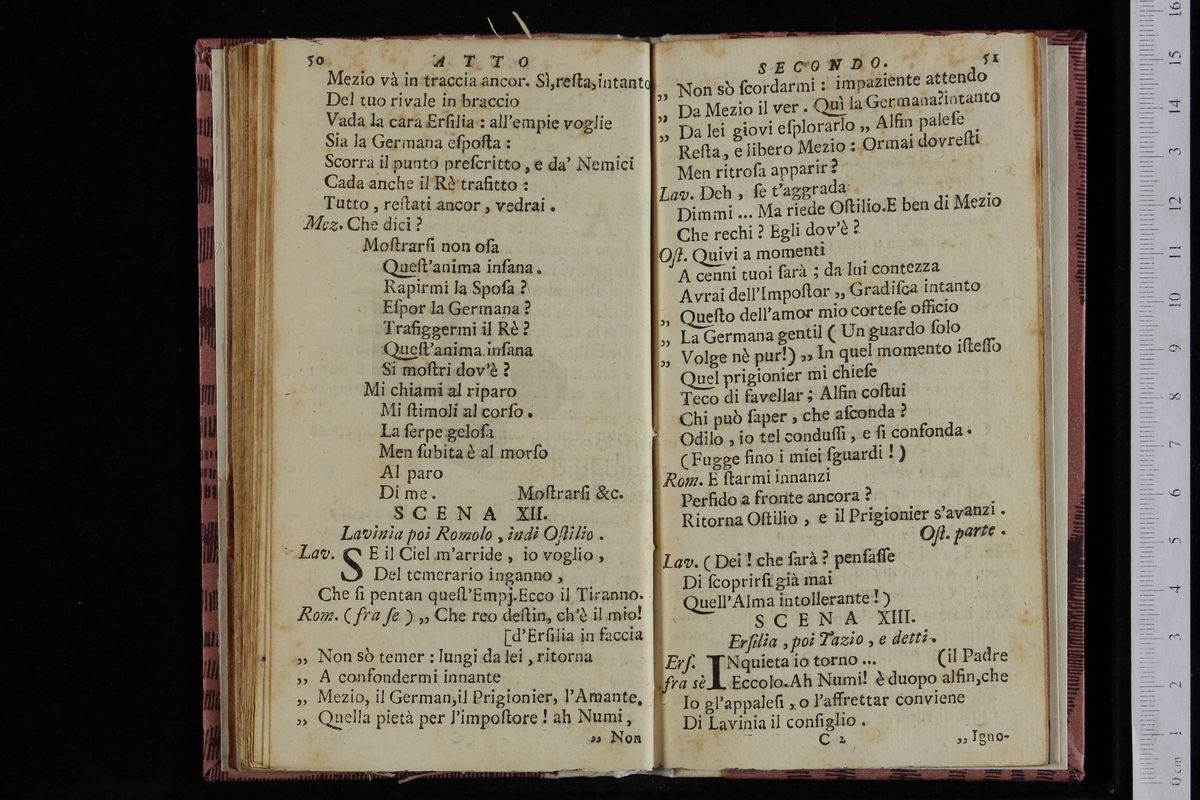 50 ATTO
Mezio và in traccia ancor. Sì,reſta,intanto
Del tuo rivale in braccio
Vada la cara Erſilia : all'empie voglie
Sia la Germana eſpoſta :
Scorra il punto preſcritto , e da' Nemici
Cada anche il Rè trafitto :
Tutto , reſtati ancor , vedrai .
Mez. Che dici ?
Moſtrarſi non oſa
Queſt'anima inſana .
Rapirmi la Spoſa ?
Eſpor la Germana ?
Trafiggermi il Rè ?
Queſt'anima inſana
Si moſtri dov'è ?
Mi chiami al riparo
Mi ſtimoli al corſo .
La ſerpe geloſa
Men ſubita è al morſo
Al paro
Di me . Moſtrarſi &c.
SCENA XII.
Lavinia poi Romolo , indi Oſtilio .
Lav. SE il Ciel m'arride , io voglio ,
Del temerario inganno ,
Che ſi pentan queſt'Empj.Ecco il Tiranno.
Rom. (fra ſe ) „ Che reo deſtin, ch'è il mio!
[d'Erſilia in faccia
„ Non sò temer : lungi da lei , ritorna
„ A confondermi innante
„ Mezio, il German,il Prigionier, l'Amante.
„ Quella pietà per l'impoſtore ! ah Numi ,
„ Non
SECONDO. 51
„ Non sò ſcordarmi : impaziente attendo
„ Da Mezio il ver . Quì la Germana?intanto
„ Da lei giovi eſplorarlo „ Alfin paleſe
Reſta , e libero Mezio : Ormai dovreſti
Men ritroſa apparir ?
Lav. Deh , ſe t'aggrada
Dimmi ... Ma riede Oſtilio.E ben di Mezio
Che rechi ? Egli dov'è ?
Oſt. Quivi a momenti
A cenni tuoi ſarà ; da lui contezza
Avrai dell'Impoſtor „ Gradiſca intanto
„ Queſto dell'amor mio corteſe officio
„ La Germana gentil ( Un guardo ſolo
„ Volge nè pur!) „ In quel momento iſteſſo
Quel prigionier mi chieſe
Teco di favellar ; Alfin coſtui
Chi può ſaper , che aſconda ?
Odilo , io tel conduſſi , e ſi confonda .
(Fugge fino i miei ſguardi ! )
Rom. E ſtarmi innanzi
Perfido a fronte ancora ?
Ritorna Oſtilio , e il Prigionier s'avanzi .
Oſt. parte .
Lav. (Dei ! che ſarà ? penſaſſe
Di ſcoprirſi già mai
Quell'Alma intollerante !)
SCENA XIII.
Erſilia , poi Tazio , e detti .
Erſ. INquieta io torno ... (il Padre
fra sè Eccolo.Ah Numi! è duopo alfin,che
Io gl'appaleſi , o l'affrettar conviene
Di Lavinia il conſiglio .
C 2 „ Igno-
0 cm 1 2 3 4 5 6 7 8 9 10 11 12 13 14 15 16